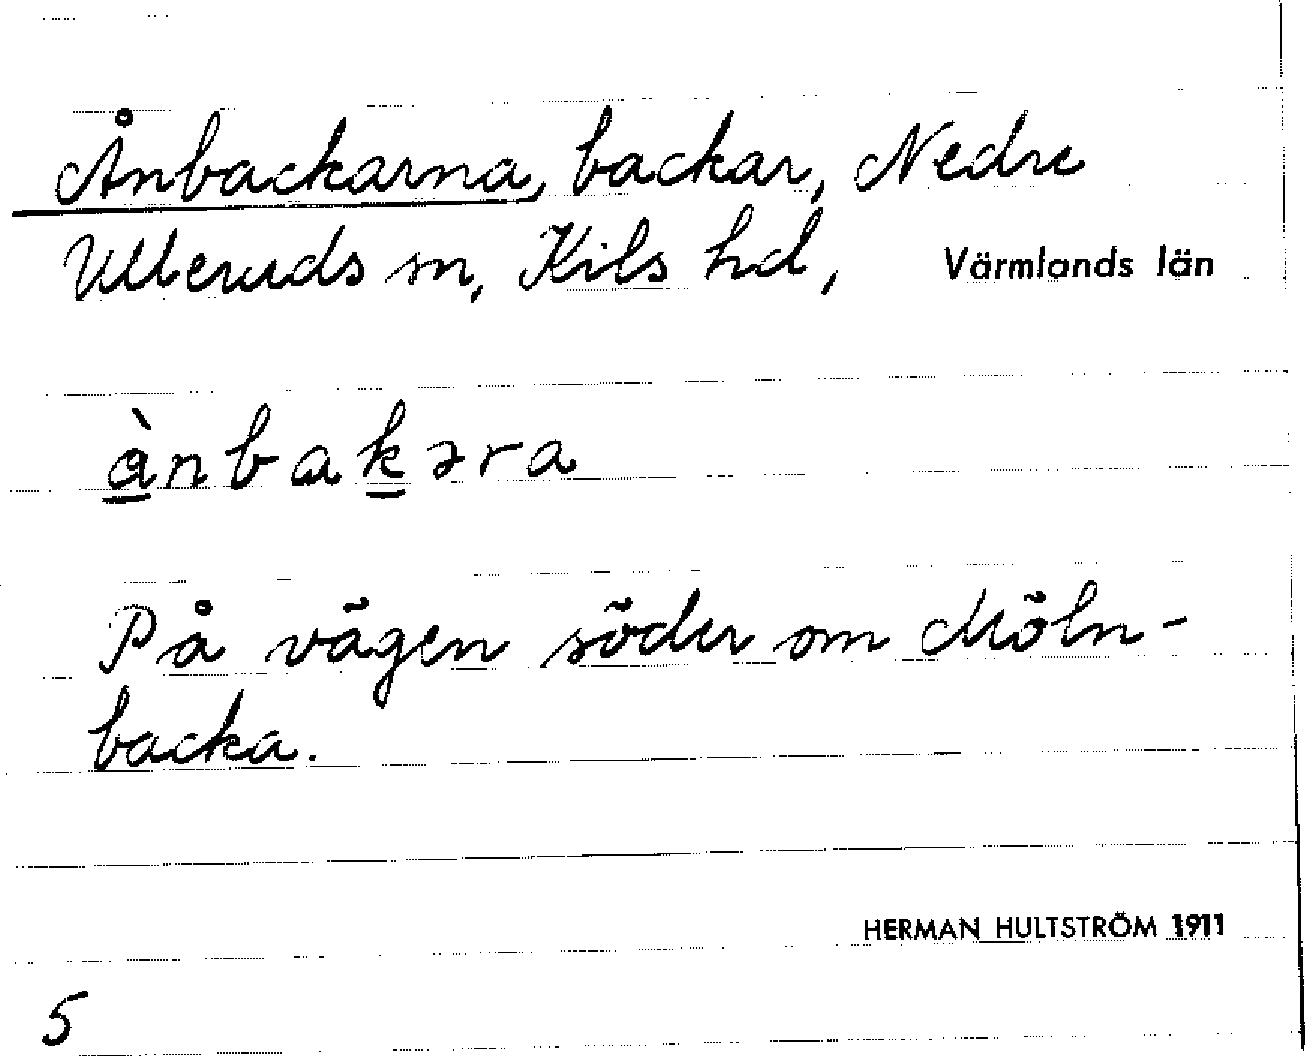 Ånbackarna, backar, Nedre
Ulleruds sn, Kils hd, Värmlands län
ànbakəra
På vägen söder om Möln-
backa.
HERMAN HULTSTRÖM 1911
5